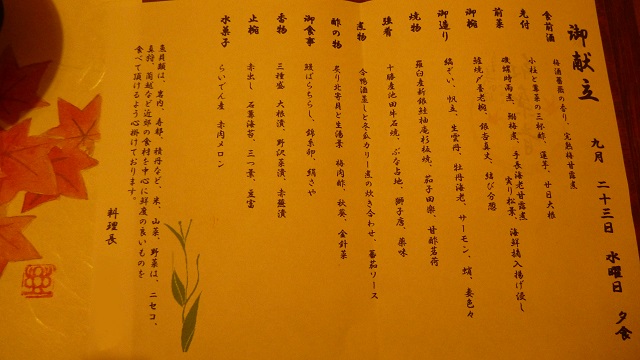 御献立
九月 二十三日 水曜日 夕食
食前酒 梅酒薔薇の香り、完熟梅甘露煮
先付 小柱と蓴菜の三杯酢、蓮芋、廿日大根
前菜 磯螺時雨煮、鰯梅煮、手長海老甘露煮、海鮮摘入揚げ浸し
実り松葉、
御椀 鱧焼〆養老椀、銀杏真丈、結び分葱
御造り 縞ぞい、帆立、生雲丹、牡丹海老、サーモン、蛸、妻色々
焼物 羅臼産新銀鮭柚庵杉板焼、茄子田楽、甘酢茗荷
強肴 十勝産池田牛石焼、ぶな占地、獅子唐、薬味
煮物 合鴨酒蒸しと冬瓜カリー煮の炊き合わせ、蕃茄ソース
酢の物 炙り北寄貝と生湯葉 梅肉酢、秋葵、金針菜
御食事 鰻ばらちらし、錦糸卵、絹さや
香物 三種盛 大根漬、野沢菜漬、赤蕪漬
止椀 赤出し 石蓴海苔、三つ葉、豆富
水菓子 らいでん産 赤肉メロン
魚貝類は、岩内、寿都、積丹など、米、山菜、野菜は、ニセコ、
真狩、蘭越など近郊の食材を中心に鮮度の良いものを
食べて頂けるよう心掛けております。
料理長